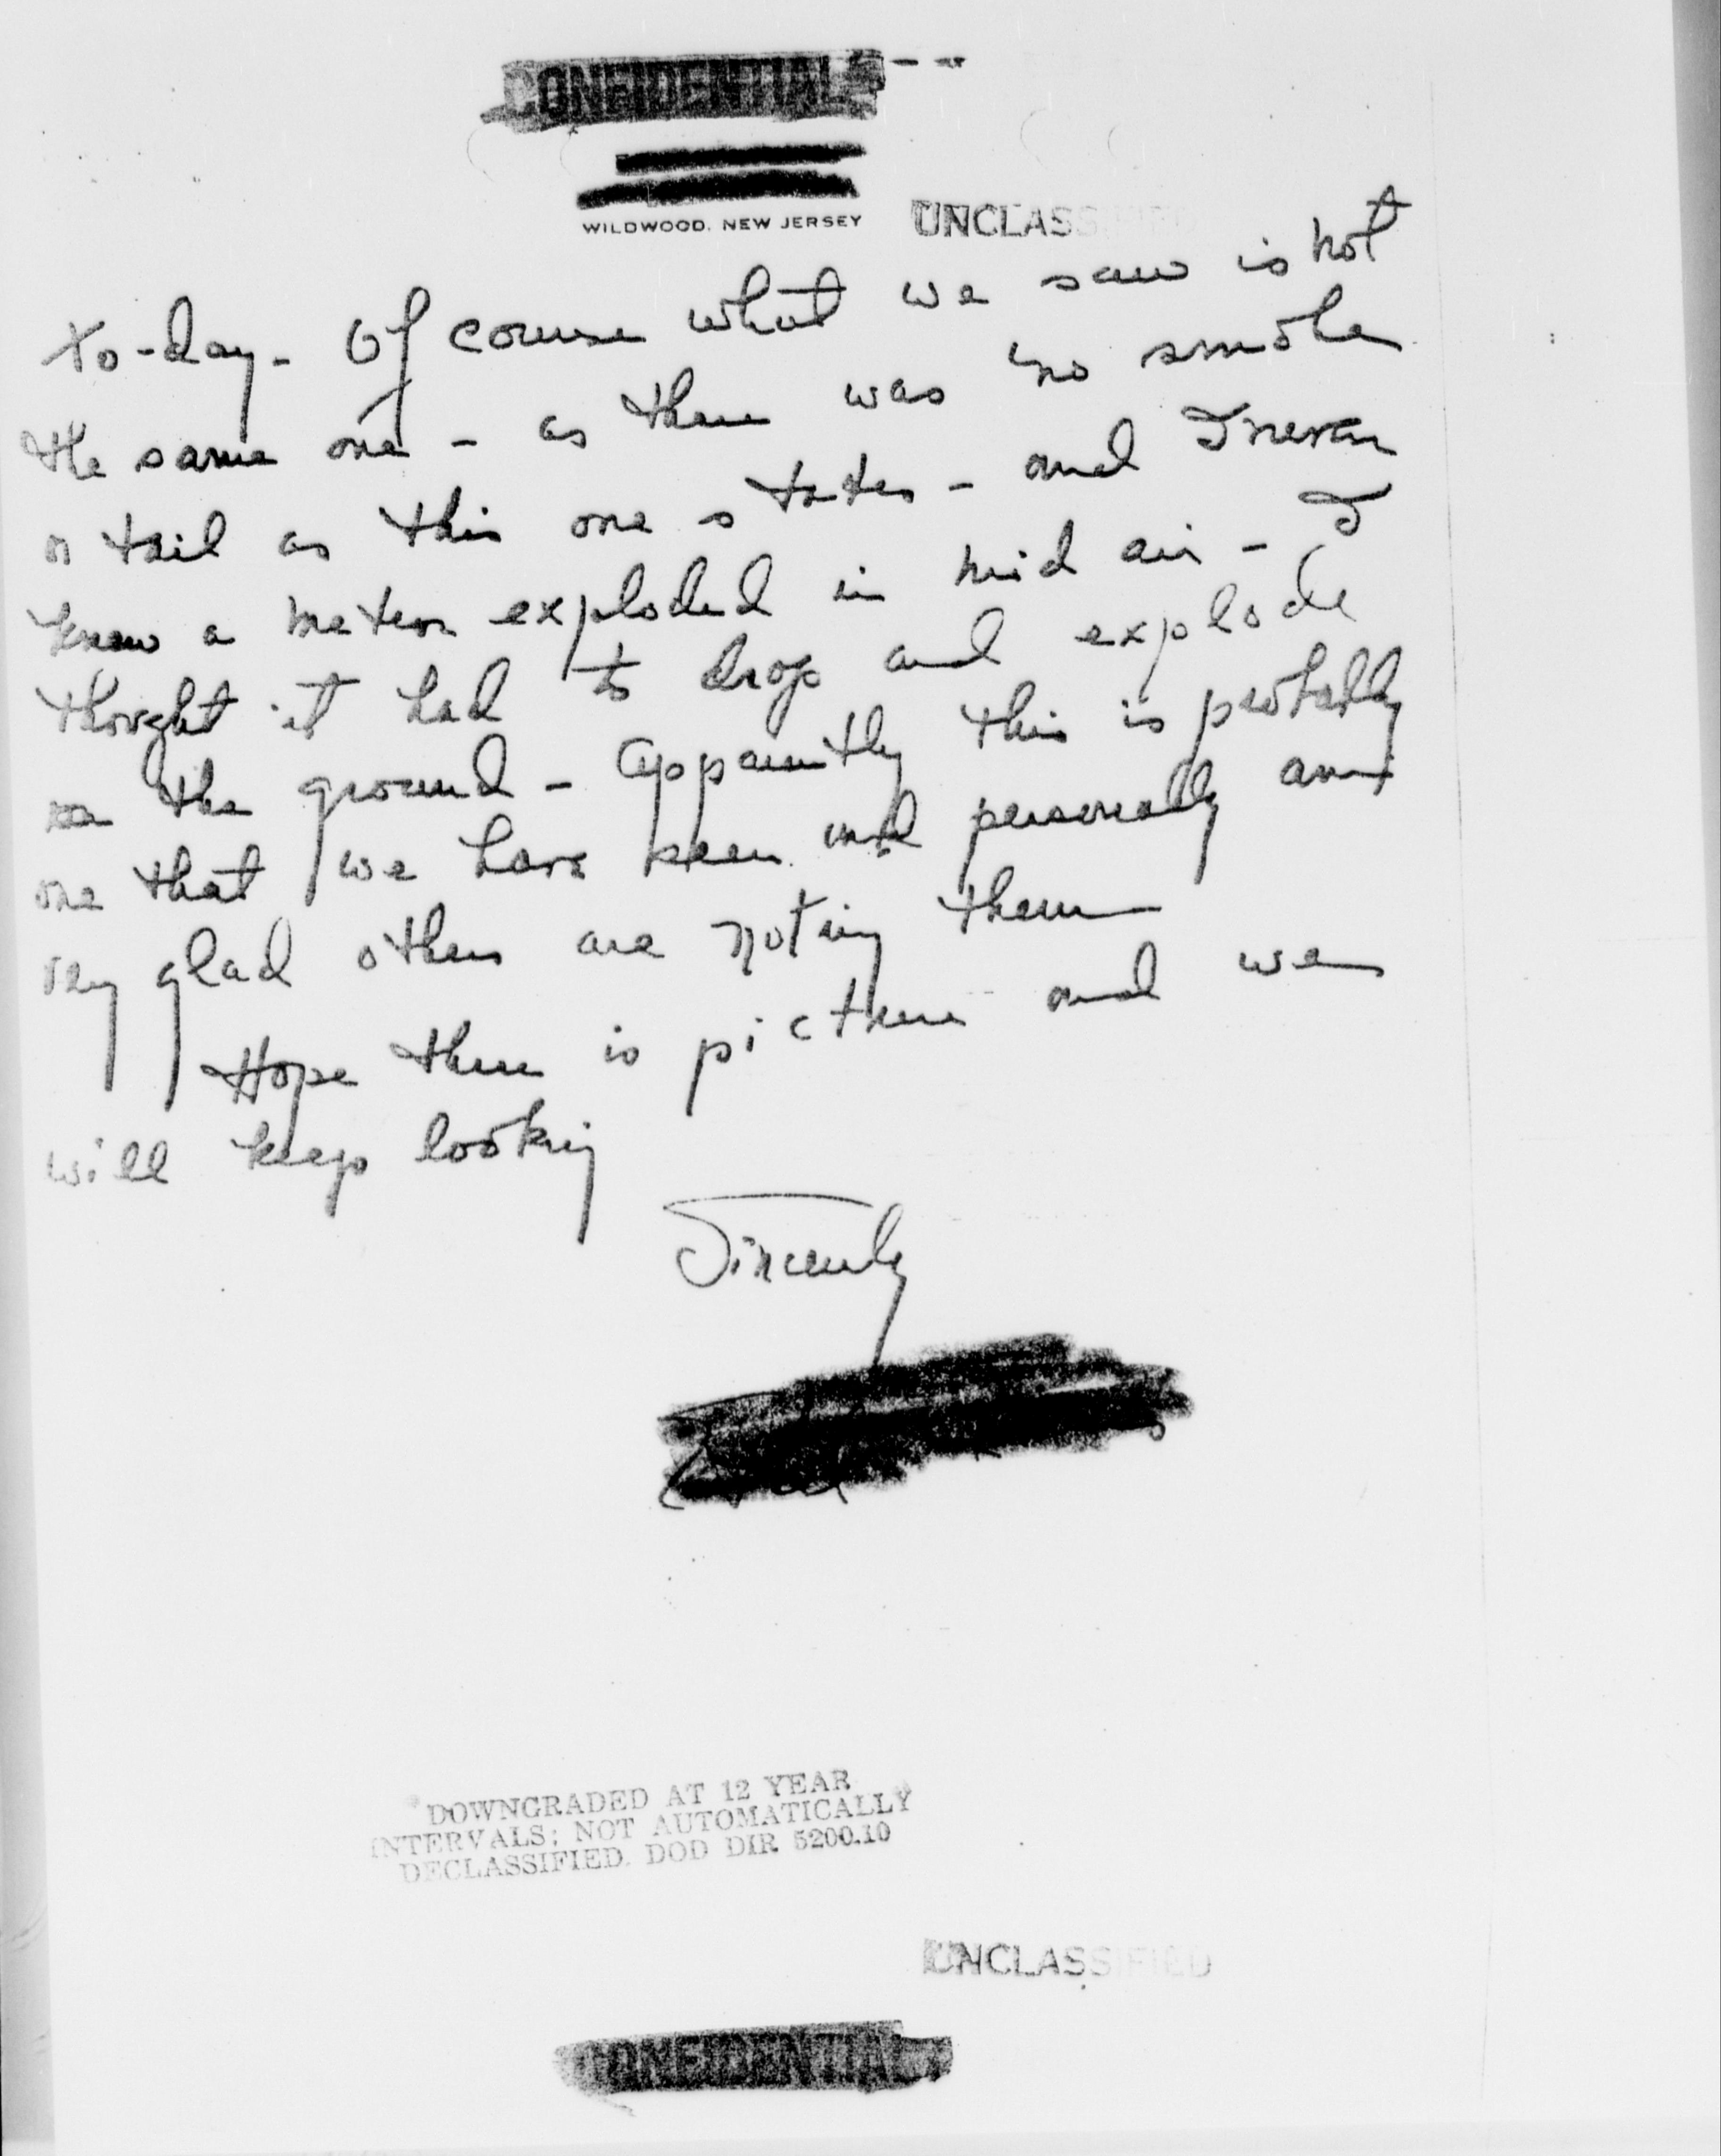 CONFIDENTIAL
WILDWOOD, NEW JERSEY
UNCLASSIFIED
to-day - Of course what we saw is not
the same one - as there was no smoke
or tail as this one states - and I never
knew a meteor exploded in mid air - I
thought it had to drop and explode
on the ground - Apparently this is probably
one that we have seen and personally am
very glad others are noting them
Hope there is picture and we
will keep looking
Sincerely
DOWNGRADED AT 12 YEAR
INTERVALS; NOT AUTOMATICALLY
DECLASSIFIED. DOD DIR 5200.10
UNCLASSIFIED
CONFIDENTIAL